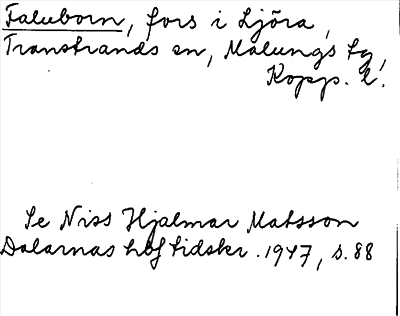 Faluborn, fors i Ljöra,
Transtrands sn, Malungs tg,
Kopp. l.
Se Niss Hjalmar Matsson
Dalarnas hbf tidskr. 1947, s. 88